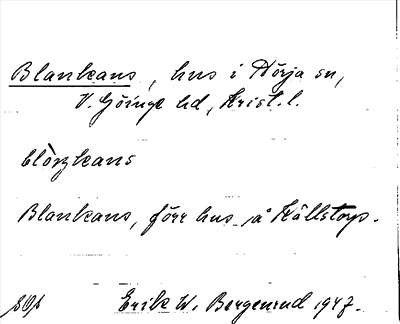 Blankans, hus i Hörja sn,
V. Göinge hd, Krist. l.
Blankans, förr hus på Källstorp.
Erik W. Bergenrud 1947.